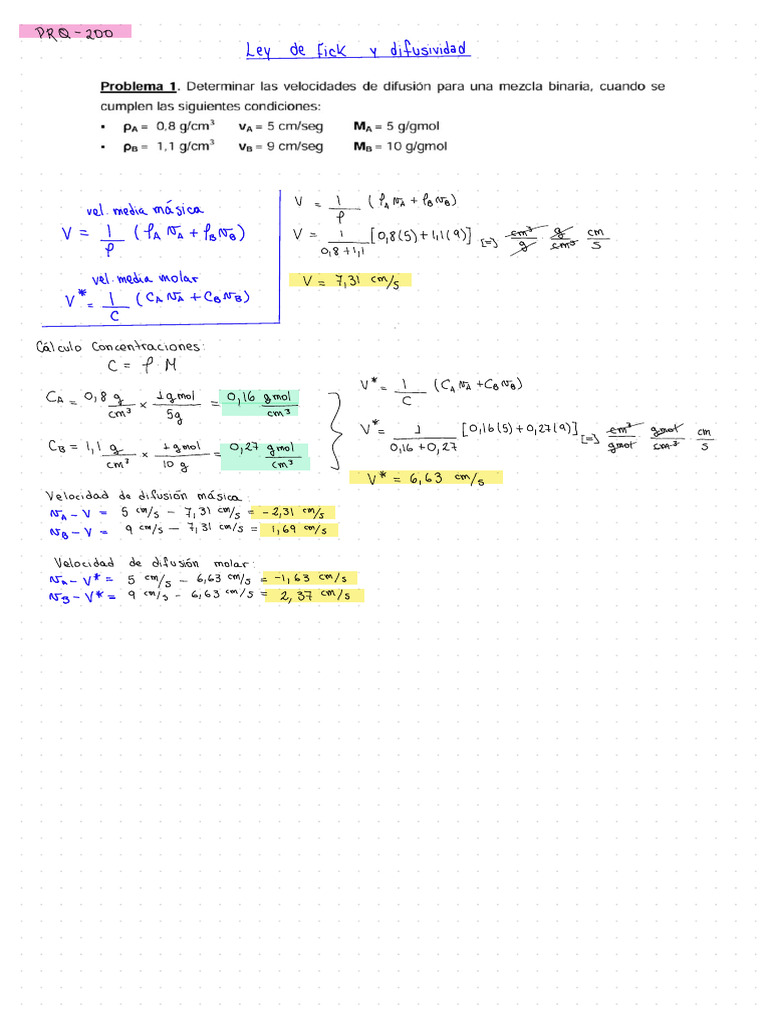 PRQ-200
Ley de Fick y difusividad
Problema 1. Determinar las velocidades de difusión para una mezcla binaria, cuando se
cumplen las siguientes condiciones:
▪ ρA = 0,8 g/cm³ vA = 5 cm/seg MA = 5 g/gmol
▪ ρB = 1,1 g/cm³ vB = 9 cm/seg MB = 10 g/gmol
vel. media másica
V = 1/ρ (ρA vA + ρB vB)
vel. media molar
V* = 1/C (CA vA + CB vB)
V = 1/ρ (ρA vA + ρB vB)
V = 1/(0,8+1,1) [0,8(5)+1,1(9)] [=] cm³/g g/cm³ cm/s
V = 7,31 cm/s
Cálculo Concentraciones:
C = ρ·M
CA = 0,8 g/cm³ × 1gmol/5g = 0,16 gmol/cm³
CB = 1,1 g/cm³ × 1gmol/10 g = 0,27 gmol/cm³
V* = 1/C (CA vA + CB vB)
V* = 1/(0,16+0,27) [0,16(5)+0,27(9)] [=] cm³/gmol gmol/cm³ cm/s
V* = 6,63 cm/s
Velocidad de difusión másica:
vA - V = 5 cm/s - 7,31 cm/s = -2,31 cm/s
vB - V = 9 cm/s - 7,31 cm/s = 1,69 cm/s
Velocidad de difusión molar:
vA - V* = 5 cm/s - 6,63 cm/s = -1,63 cm/s
vB - V* = 9 cm/s - 6,63 cm/s = 2,37 cm/s